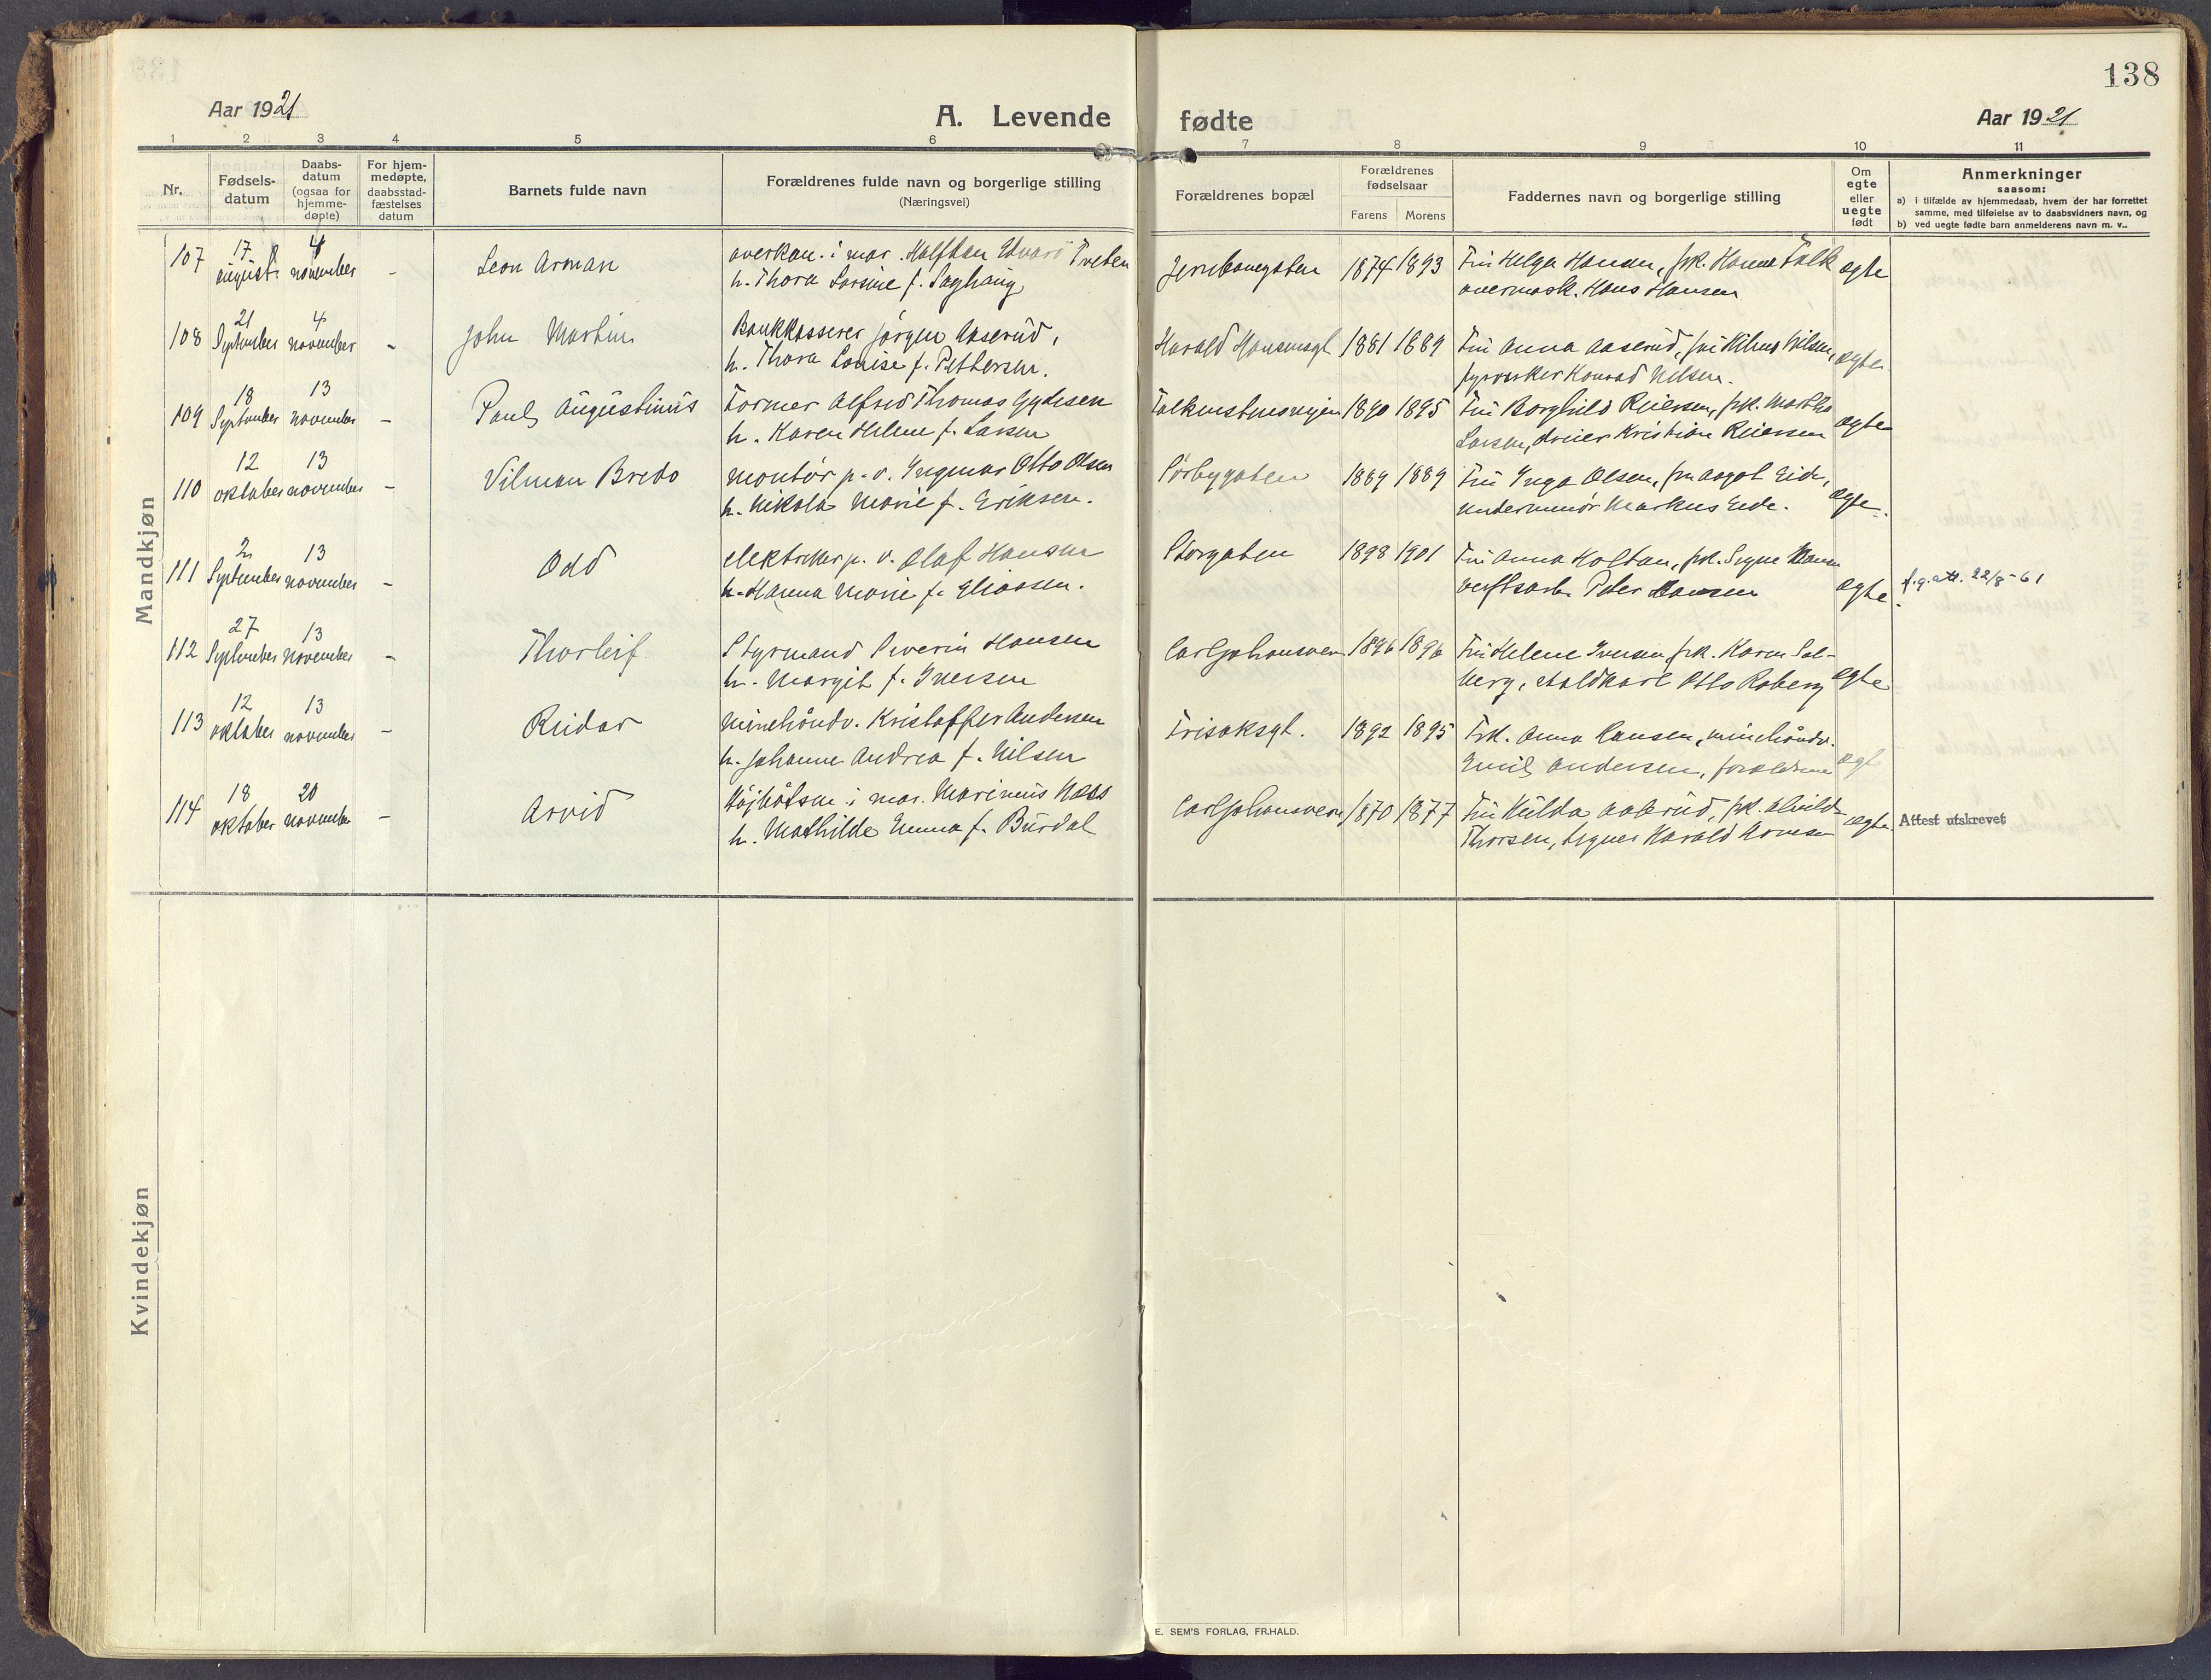 138
Aar 1921
A. Levende fødte
Aar 1921
1 2 3 4 5 6 7 8 9 10 11
Nr.
Fødsels-
datum
Daabs-
datum
(ogsaa for
hjemme-
døpte)
For hjem-
medøpte,
daabsstad-
fæstelses
datum
Barnets fulde navn
Forældrenes fulde navn og borgerlige stilling
(Næringsvei)
Forældrenes bopæl
Forældrenes
fødselsaar
Farens Morens
Faddernes navn og borgerlige stilling
Om
egte
eller
uegte
født
Anmerkninger
saasom:
a) i tilfælde av hjemmedaab, hvem der har forrettet
samme, med tilføielse av to daabsvidners navn, og
b) ved uegte fødte barn anmelderens navn m. v..
Mandkjøn
107 17 august 4 november - Leon Arman
overkan. i mar. Halfdan Edvard Tveten
h. Thora Lovise f. Saghaug
Jernbanegaten 1874 1893
Fru Helga Hansen, frk. Hanna Falk
overmask. Hans Hansen
egte
108 21 September 4 november - John Martin
Bankkasserer Jørgen Aaserud,
h. Thora Louise f. Pettersen.
Harald Hansensgt 1881 1889
Fru Anna Aaserud, fru Hilma Nilsen,
fyrverker Konrad Nilsen.
egte
109 18 September 13 november - Paul Augustinus
Former Alfred Thomas Gydesen
h. Karen Helene f. Larsen
Falkenstensveien 1890 1895
Fru Borghild Reiersen, frk. Martha
Larsen, dreier Kristian Reiersen
egte
110 12 oktober 13 november - Vilman Bredo
montør p. v. Ingmar Otto Olsen
h. Nikola Marie f. Eriksen.
Sørbygaten 1889 1889
Fru Inga Olsen, fru Aagot Eide,
underminør Markus Eide.
egte.
111 2 September 13 november - Odd
elektriker p. v. Olaf Hansen
h. Hanna Marie f. Eliassen.
Storgaten 1898 1901
Fru Anna Holtan, frk. Signe Hansen
verftsarb. Peter Hansen
egte
f.g.att. 22/8-61
112 27 September 13 november - Thorleif
Styrmand Severin Hansen
h. Margit f. Iversen
Carljohansvern 1896 1896
Fru Helene Iversen, frk. Karen Sol-
berg, staldkarl Otto Roberg
egte
113 12 oktober 13 november - Reidar
minehåndv. Kristoffer Andersen
h. Johanne Andrea f. Nilsen
Frisaksgt. 1892 1895
Frk. Anna Hansen, minehåndv.
Emil Andersen, forældrene
egt
114 18 oktober 20 november - Arvid
Højbåtsm. i mar. Marinius Næss
h. Mathilde Emma f. Burdal
Carljohansvern 1870 1877
Fru Hulda Aaserud, frk. Alvild
Thorsen, tegner Harald Hansen
egte
Attest utskrevet
Kvindekjøn
E. SEM'S FORLAG, FR.HALD.